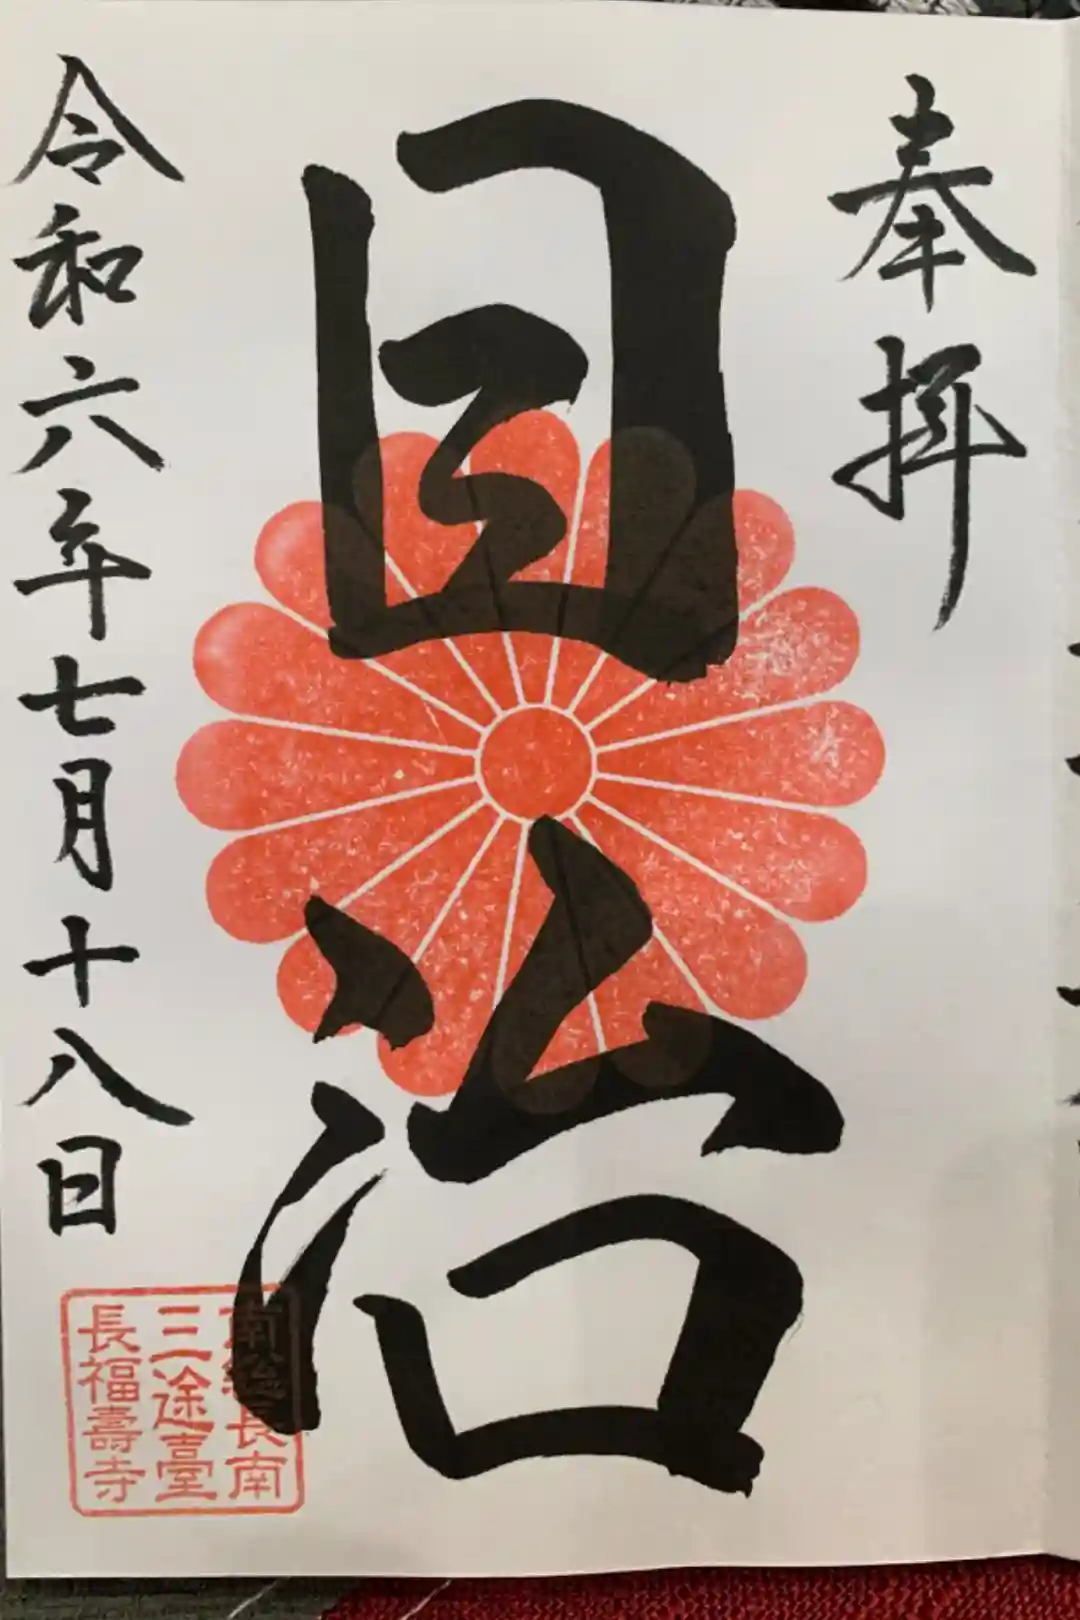 奉拝
日治
令和六年七月十八日
南総長南
三途臺
長福壽寺